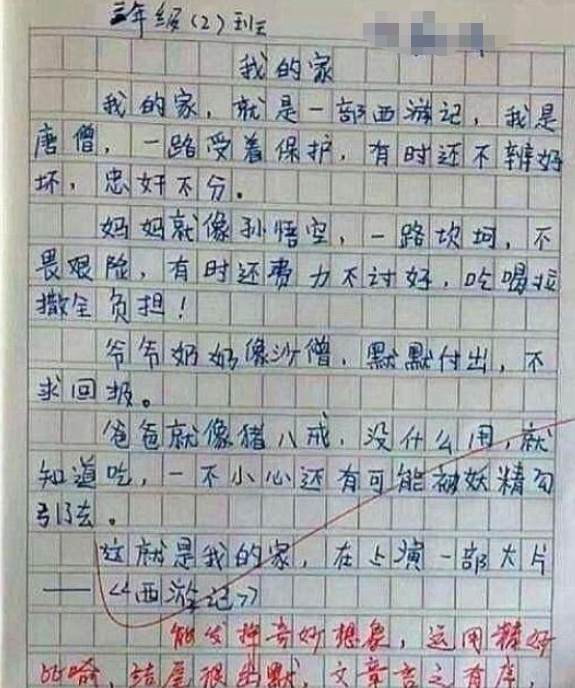 三年级(2)班
我的家
我的家，就是一部西游记，我是
唐僧，一路受着保护，有时还不辨好
坏，忠奸不分。
妈妈就像孙悟空，一路坎坷，不
畏艰险，有时还费力不讨好，吃喝拉
撒全负担！
爷爷奶奶像沙僧，默默付出，不
求回报。
爸爸就像猪八戒，没什么用，就
知道吃，一不小心还有可能被妖精勾
引去。
这就是我的家，在上演一部大片
——《西游记》
能发挥奇妙想象，运用精妙
比喻，结尾很幽默，文章言之有序，